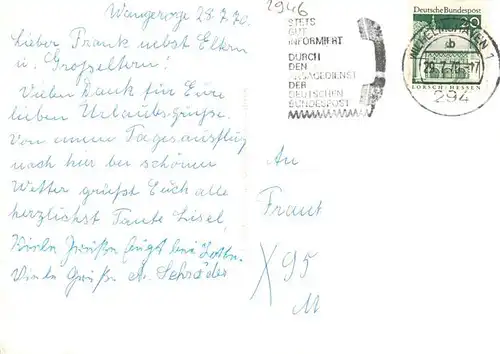 Wangerooge 28.7.70.
Lieber Frank nebst Eltern
u. Großeltern!
Vielen Dank für Eure
lieben Urlaubsgrüße.
Von einem Tagesausflug
nach hier bei schönem
Wetter grüßt Euch alle
herzlichst Tante Liesel,
Viele Grüße fügt bei
Viele Grüße A. Schröder
2946
STETS
GUT
INFORMIERT
DURCH
DEN
ANSAGEDIENST
DER
DEUTSCHEN
BUNDESPOST
Deutsche Bundespost
20
LORSCH/HESSEN
WILHELMSHAVEN 1
29.7.70.-17
294
An
X 95
M